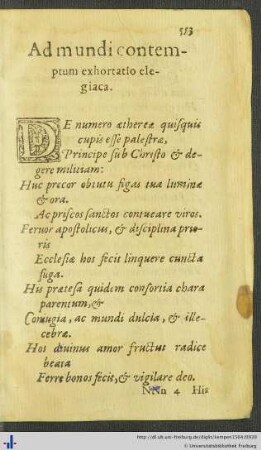 553
Ad mundi contem-
ptum exhortatio ele-
giaca.
DE numero æthereæ quisquis
cupis esse palestræ,
Principe sub Christo & de-
gere militiam:
Huc precor obtutu figas tua lumina
& ora.
Ac priscos sanctos contueare viros.
Feruor apostolicus, & disciplina prio-
ris
Ecclesiæ hos fecit linquere cuncta
fuga.
His prætesa quidem consortia chara
parentum, &
Coniugia, ac mundi dulcia, & ille-
cebræ.
Hos diuinus amor fructus radice
beata
Ferre bonos fecit, & vigilare deo.
NNn 4 His
Universitätsbibliothek Freiburg